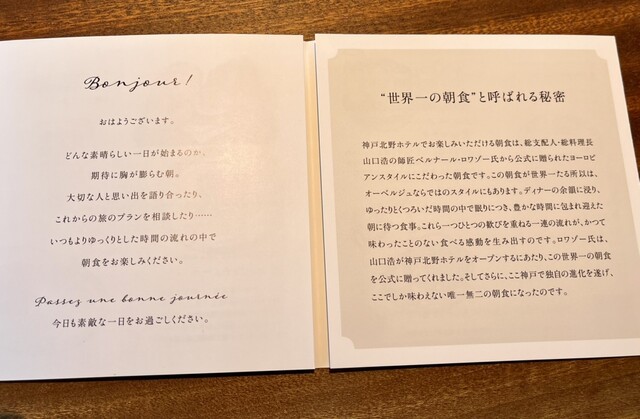 Bonjour!
おはようございます。
どんな素晴らしい一日が始まるのか。
期待に胸が膨らむ朝。
大切な人と思い出を語り合ったり、
これからの旅のプランを相談したり……
いつもよりゆっくりとした時間の流れの中で
朝食をお楽しみください。
Passez une bonne journée
今日も素敵な一日をお過ごしください。
“世界一の朝食”と呼ばれる秘密
神戸北野ホテルでお楽しみいただける朝食は、総支配人・総料理長
山口浩の師匠ベルナール・ロワゾー氏から公式に贈られたヨーロピ
アンスタイルにこだわった朝食です。この朝食が世界一たる所以は、
オーベルジュならではのスタイルにもあります。ディナーの余韻に浸り、
ゆったりとくつろいだ時間の中で眠りにつき、豊かな時間に包まれ迎えた
朝に待つ食事。これら一つひとつの歓びを重ねる一連の流れが、かつて
味わったことのない食べる感動を生み出すのです。ロワゾー氏は、
山口浩が神戸北野ホテルをオープンするにあたり、この世界一の朝食
を公式に贈ってくれました。そしてさらに、ここ神戸で独自の進化を遂げ、
ここでしか味わえない唯一無二の朝食になったのです。